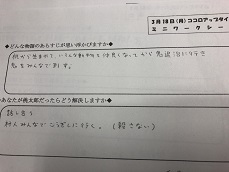 3月18日(月)ココロアップタイ
ミニワークシー
◆どんな物語のあらすじが思い浮かびますか◆
桃から生まれて、いろんな動物と仲良くなってから鬼退治に行き
鬼をみんなで刺す。
◆あなたが桃太郎だったらどう解決しますか◆
話し合う
村人みんなでこうぎしに行く。(殺さない)